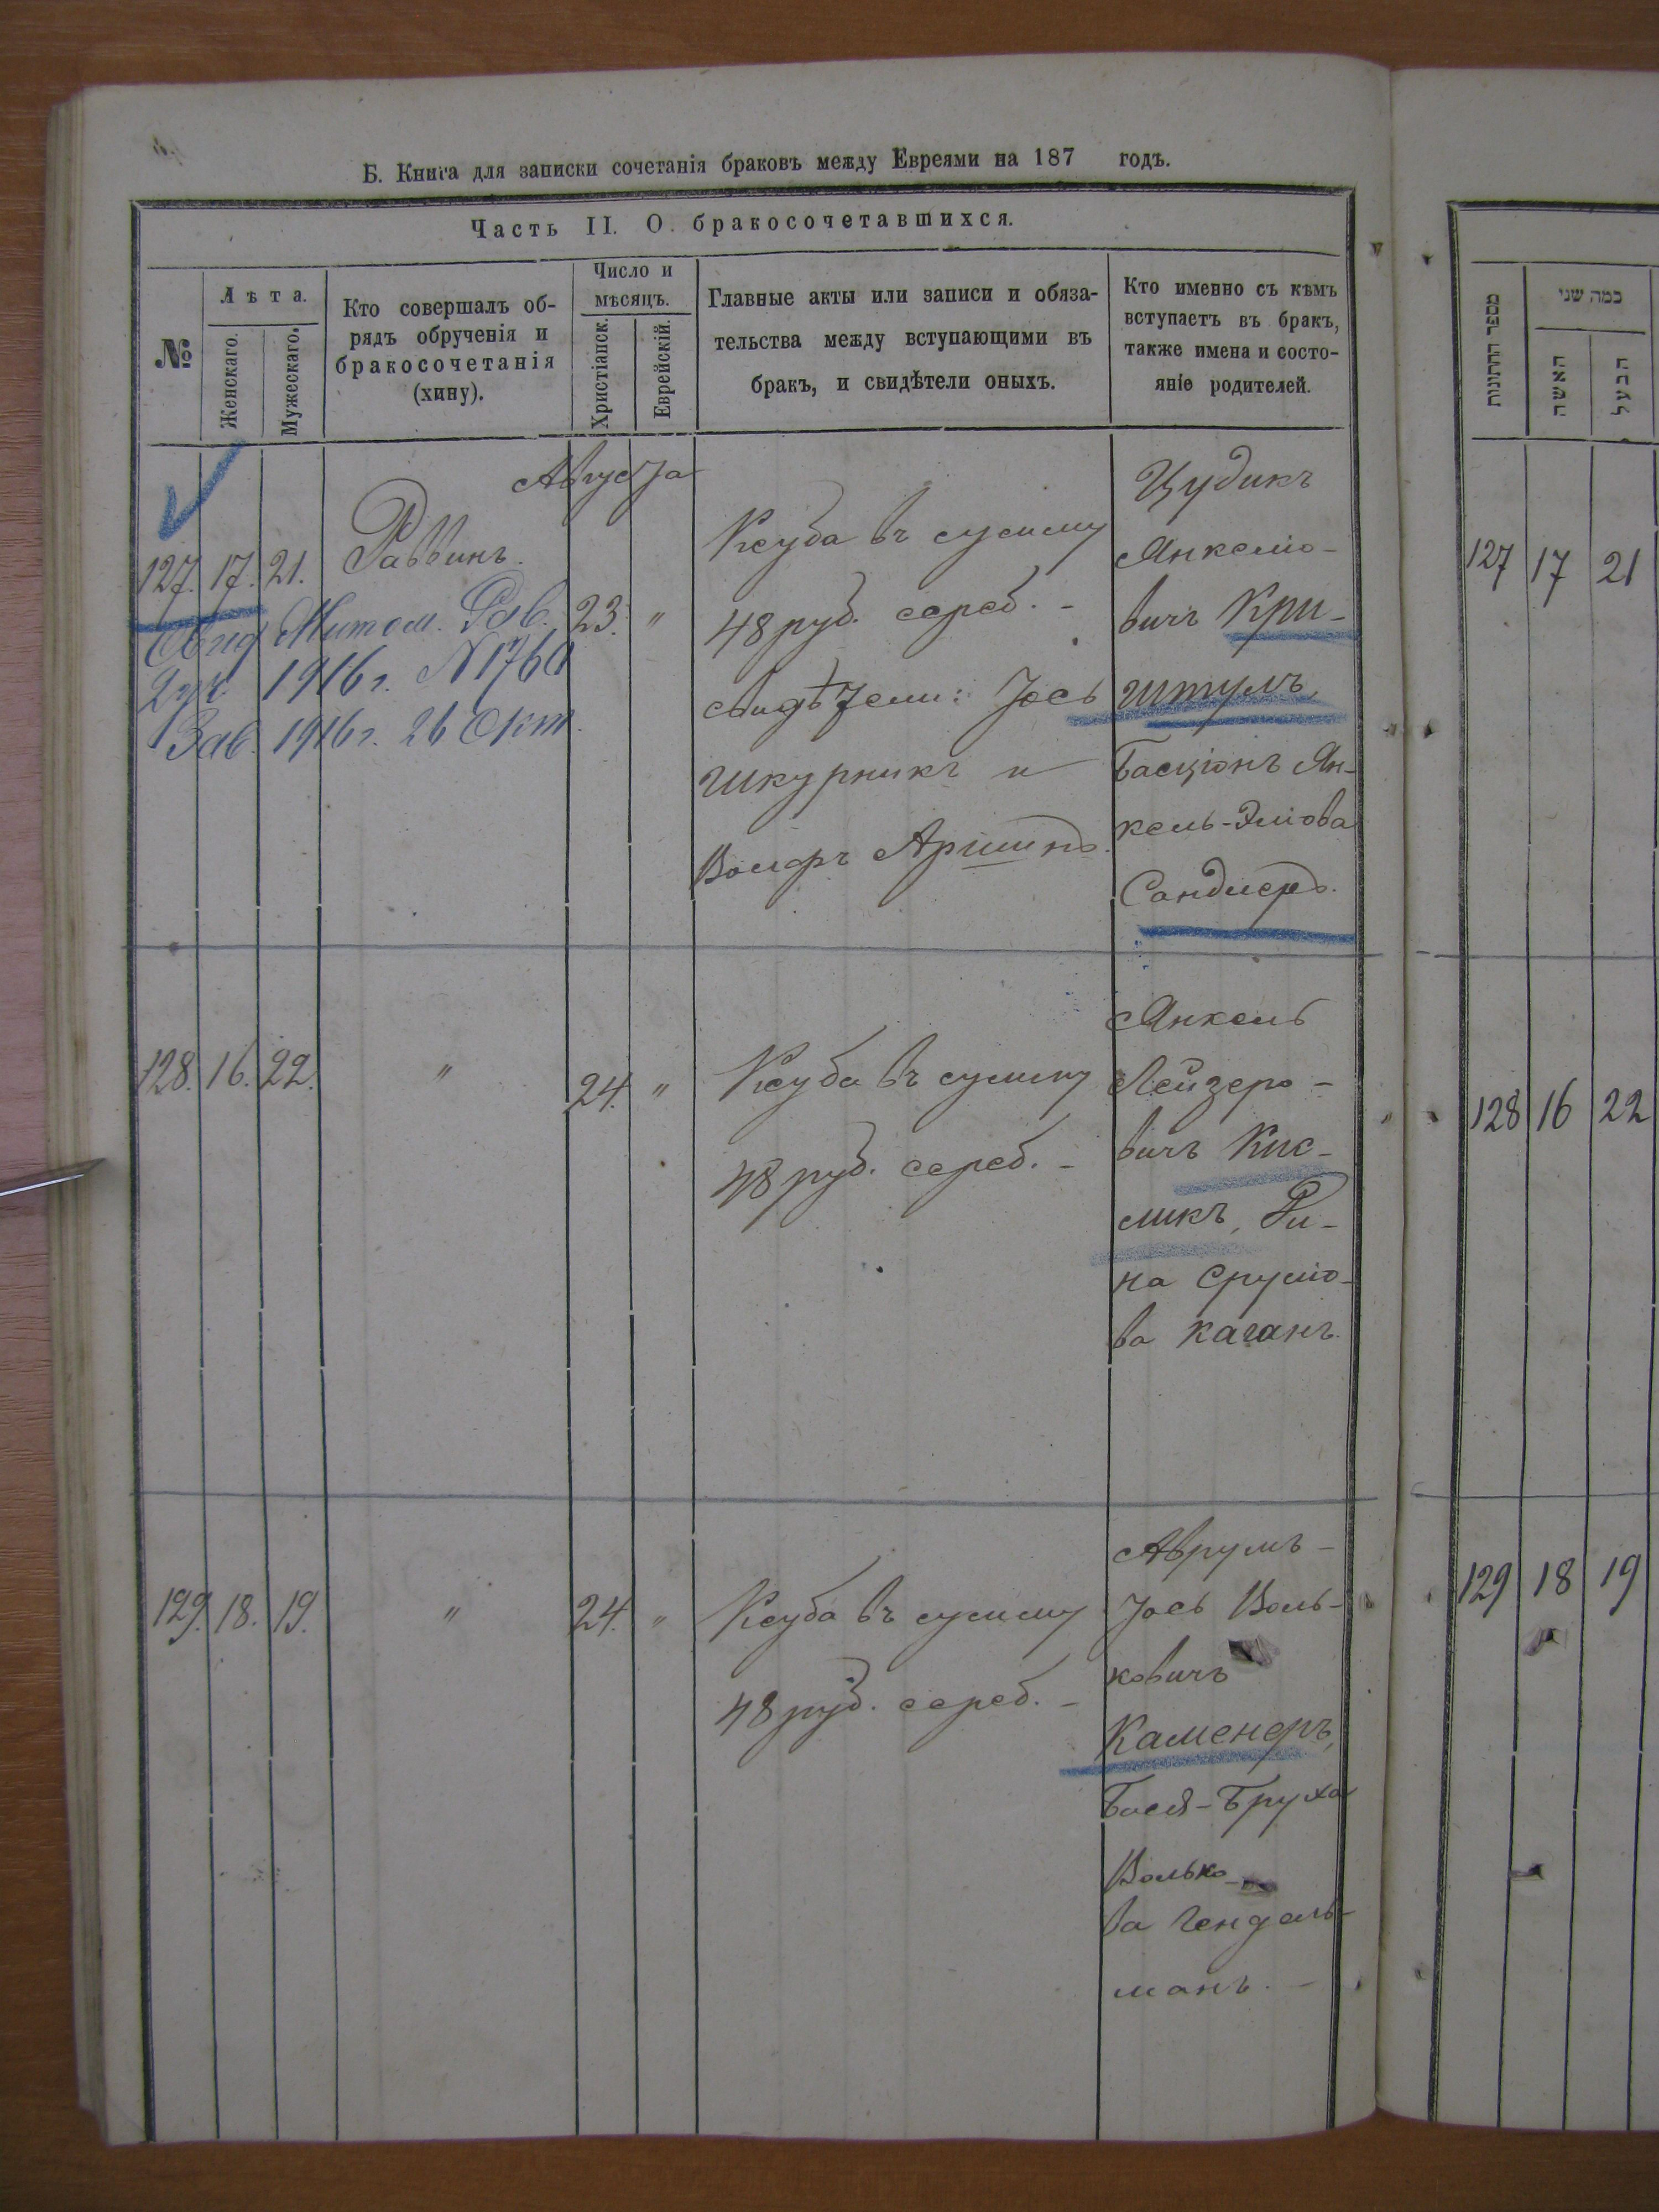 Б. Книга для записки сочетанія браковъ между Евреями на 187 годъ.
Часть II. О бракосочетавшихся.
№
Лѣта.
Женскаго.
Мужескаго.
Кто совершалъ об-
рядъ обрученія и
бракосочетанія
(хину).
Число и
мѣсяцъ.
Христіанск.
Еврейскій.
Главные акты или записи и обяза-
тельства между вступающими въ
бракъ, и свидѣтели оныхъ.
Кто именно съ кѣмъ
вступаетъ въ бракъ,
также имена и состо-
яніе родителей.
Августа
127. 17. 21. Раввинъ. 23. "
Житом. Рав.
1916 г. N 1760
1916 г. 26 Окт.
Ксуба въ сумму
48 руб. сереб. -
свидѣтели: Іось
Шкурникъ и
Вольфъ Аршинъ.
Цудикъ
Янкелю-
вичъ Кри-
штулъ,
Басціонъ Ян-
кель-Эліова
Сандлеръ.
128. 16. 22. " 24. "
Ксуба въ сумму
48 руб. сереб. -
Янкель
Лейзеро-
вичъ Кис-
ликъ, Ри-
на Срулю-
ва Каганъ.
129. 18. 19. " 24. "
Ксуба въ сумму
48 руб. сереб. -
Аврумъ-
Іось Воль-
ковичъ
Каменеръ,
Бася-Бруха
Волько-
ва Гендель-
манъ. -
מספר החתונות
כמה שני
האשה
הבעל
127 17 21
128 16 22
129 18 19